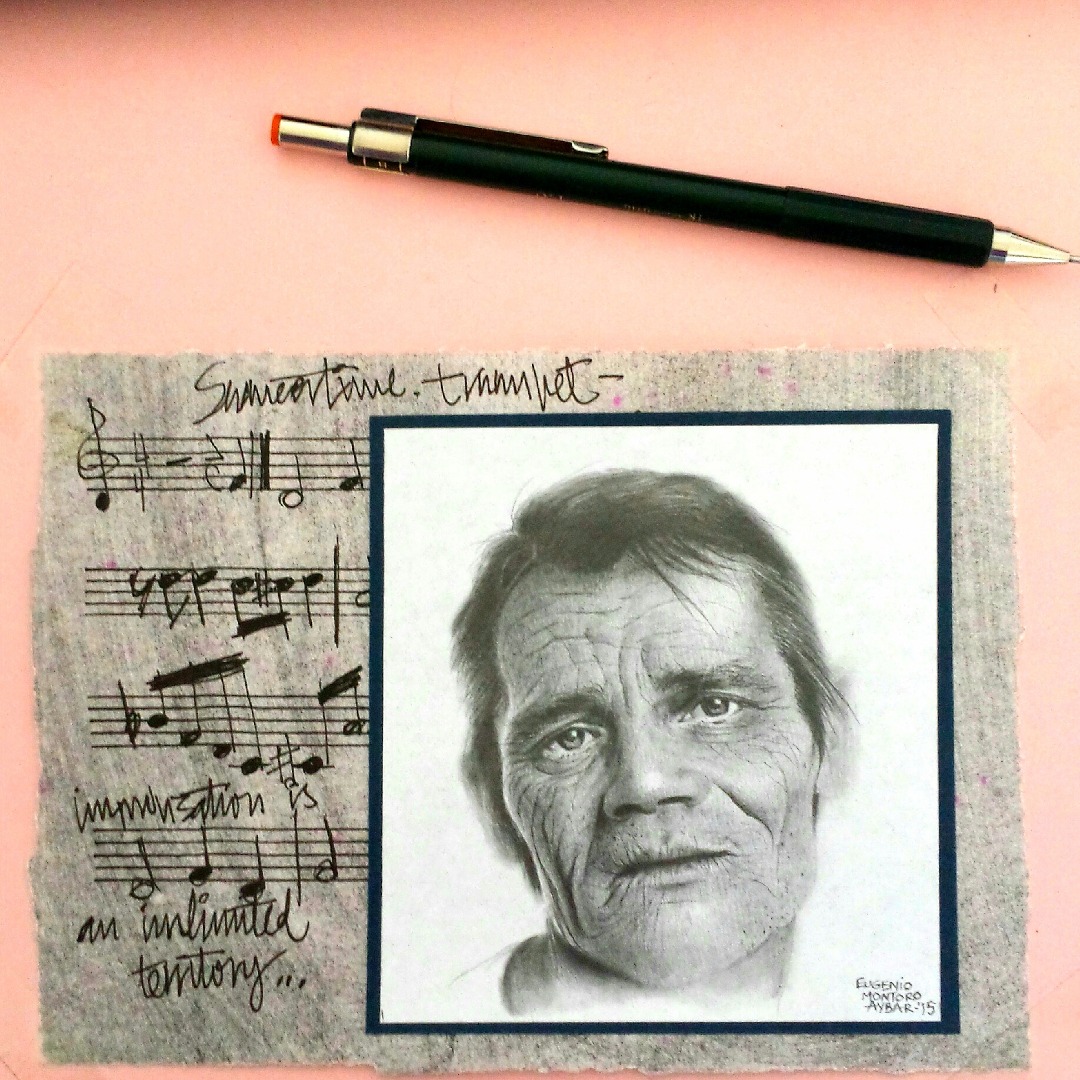 Summertime. trumpet -
improvisation is
an unlimited
territory...
EUGENIO
MONTORO
AYBAR-'15